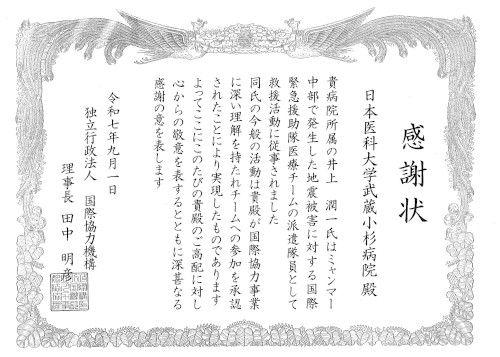 感謝状
日本医科大学武蔵小杉病院 殿
貴病院所属の井上 潤一氏はミャンマー
中部で発生した地震被害に対する国際
緊急援助隊医療チームの派遣隊員として
救援活動に従事されました
同氏の今般の活動は貴殿が国際協力事業
に深い理解を持たれチームへの参加を承認
されたことにより実現したものであります
よってここにこのたびの貴殿のご高配に対し
心からの敬意を表するとともに深甚なる
感謝の意を表します
令和七年九月一日
独立行政法人 国際協力機構
理事長 田中 明彦